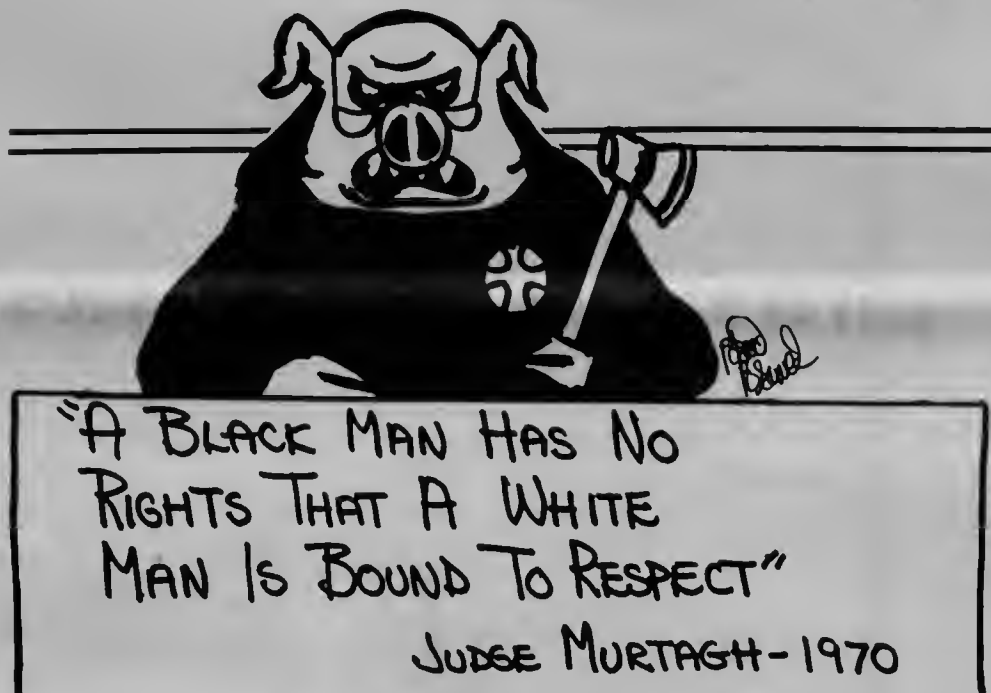 "A BLACK MAN HAS NO
RIGHTS THAT A WHITE
MAN IS BOUND TO RESPECT"
JUDGE MURTAGH-1970